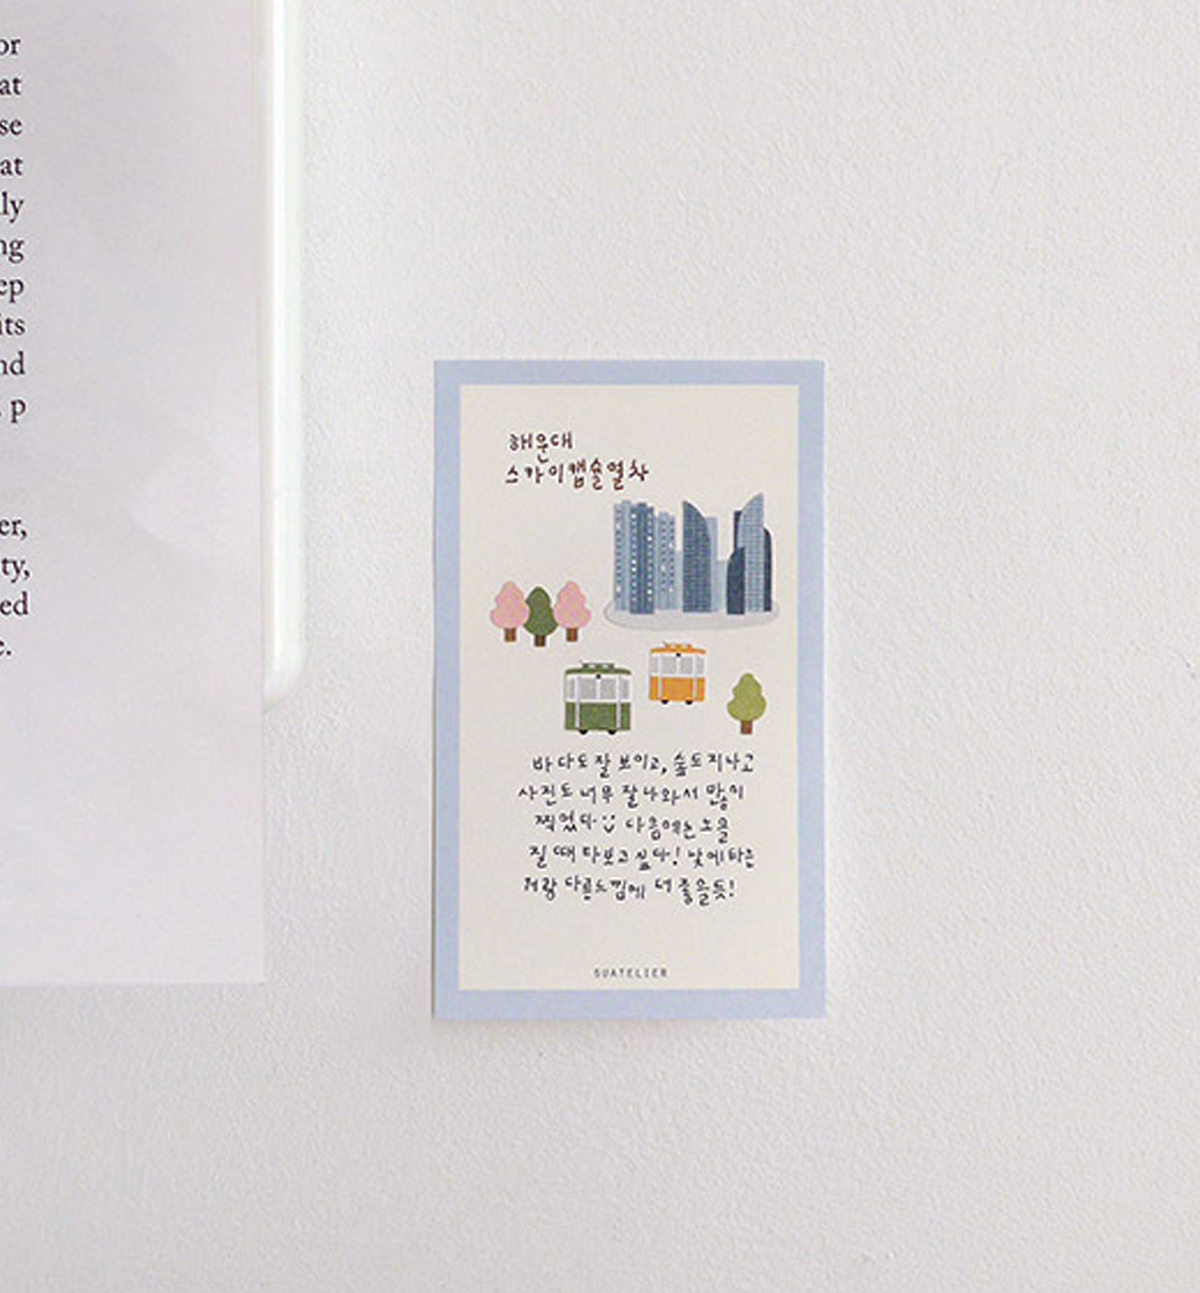 or
at
se
at
ly
ng
ep
its
nd
p
er,
ty,
ed
e.
해운대
스카이캡슐열차
바다도 잘 보이고, 숲도 지나고
사진도 너무 잘 나와서 많이
찍었다 다음에는 노을
질 때 타보고 싶다! 낮에 타는
거랑 다른 느낌에 더 좋을 듯!
SUATELIER